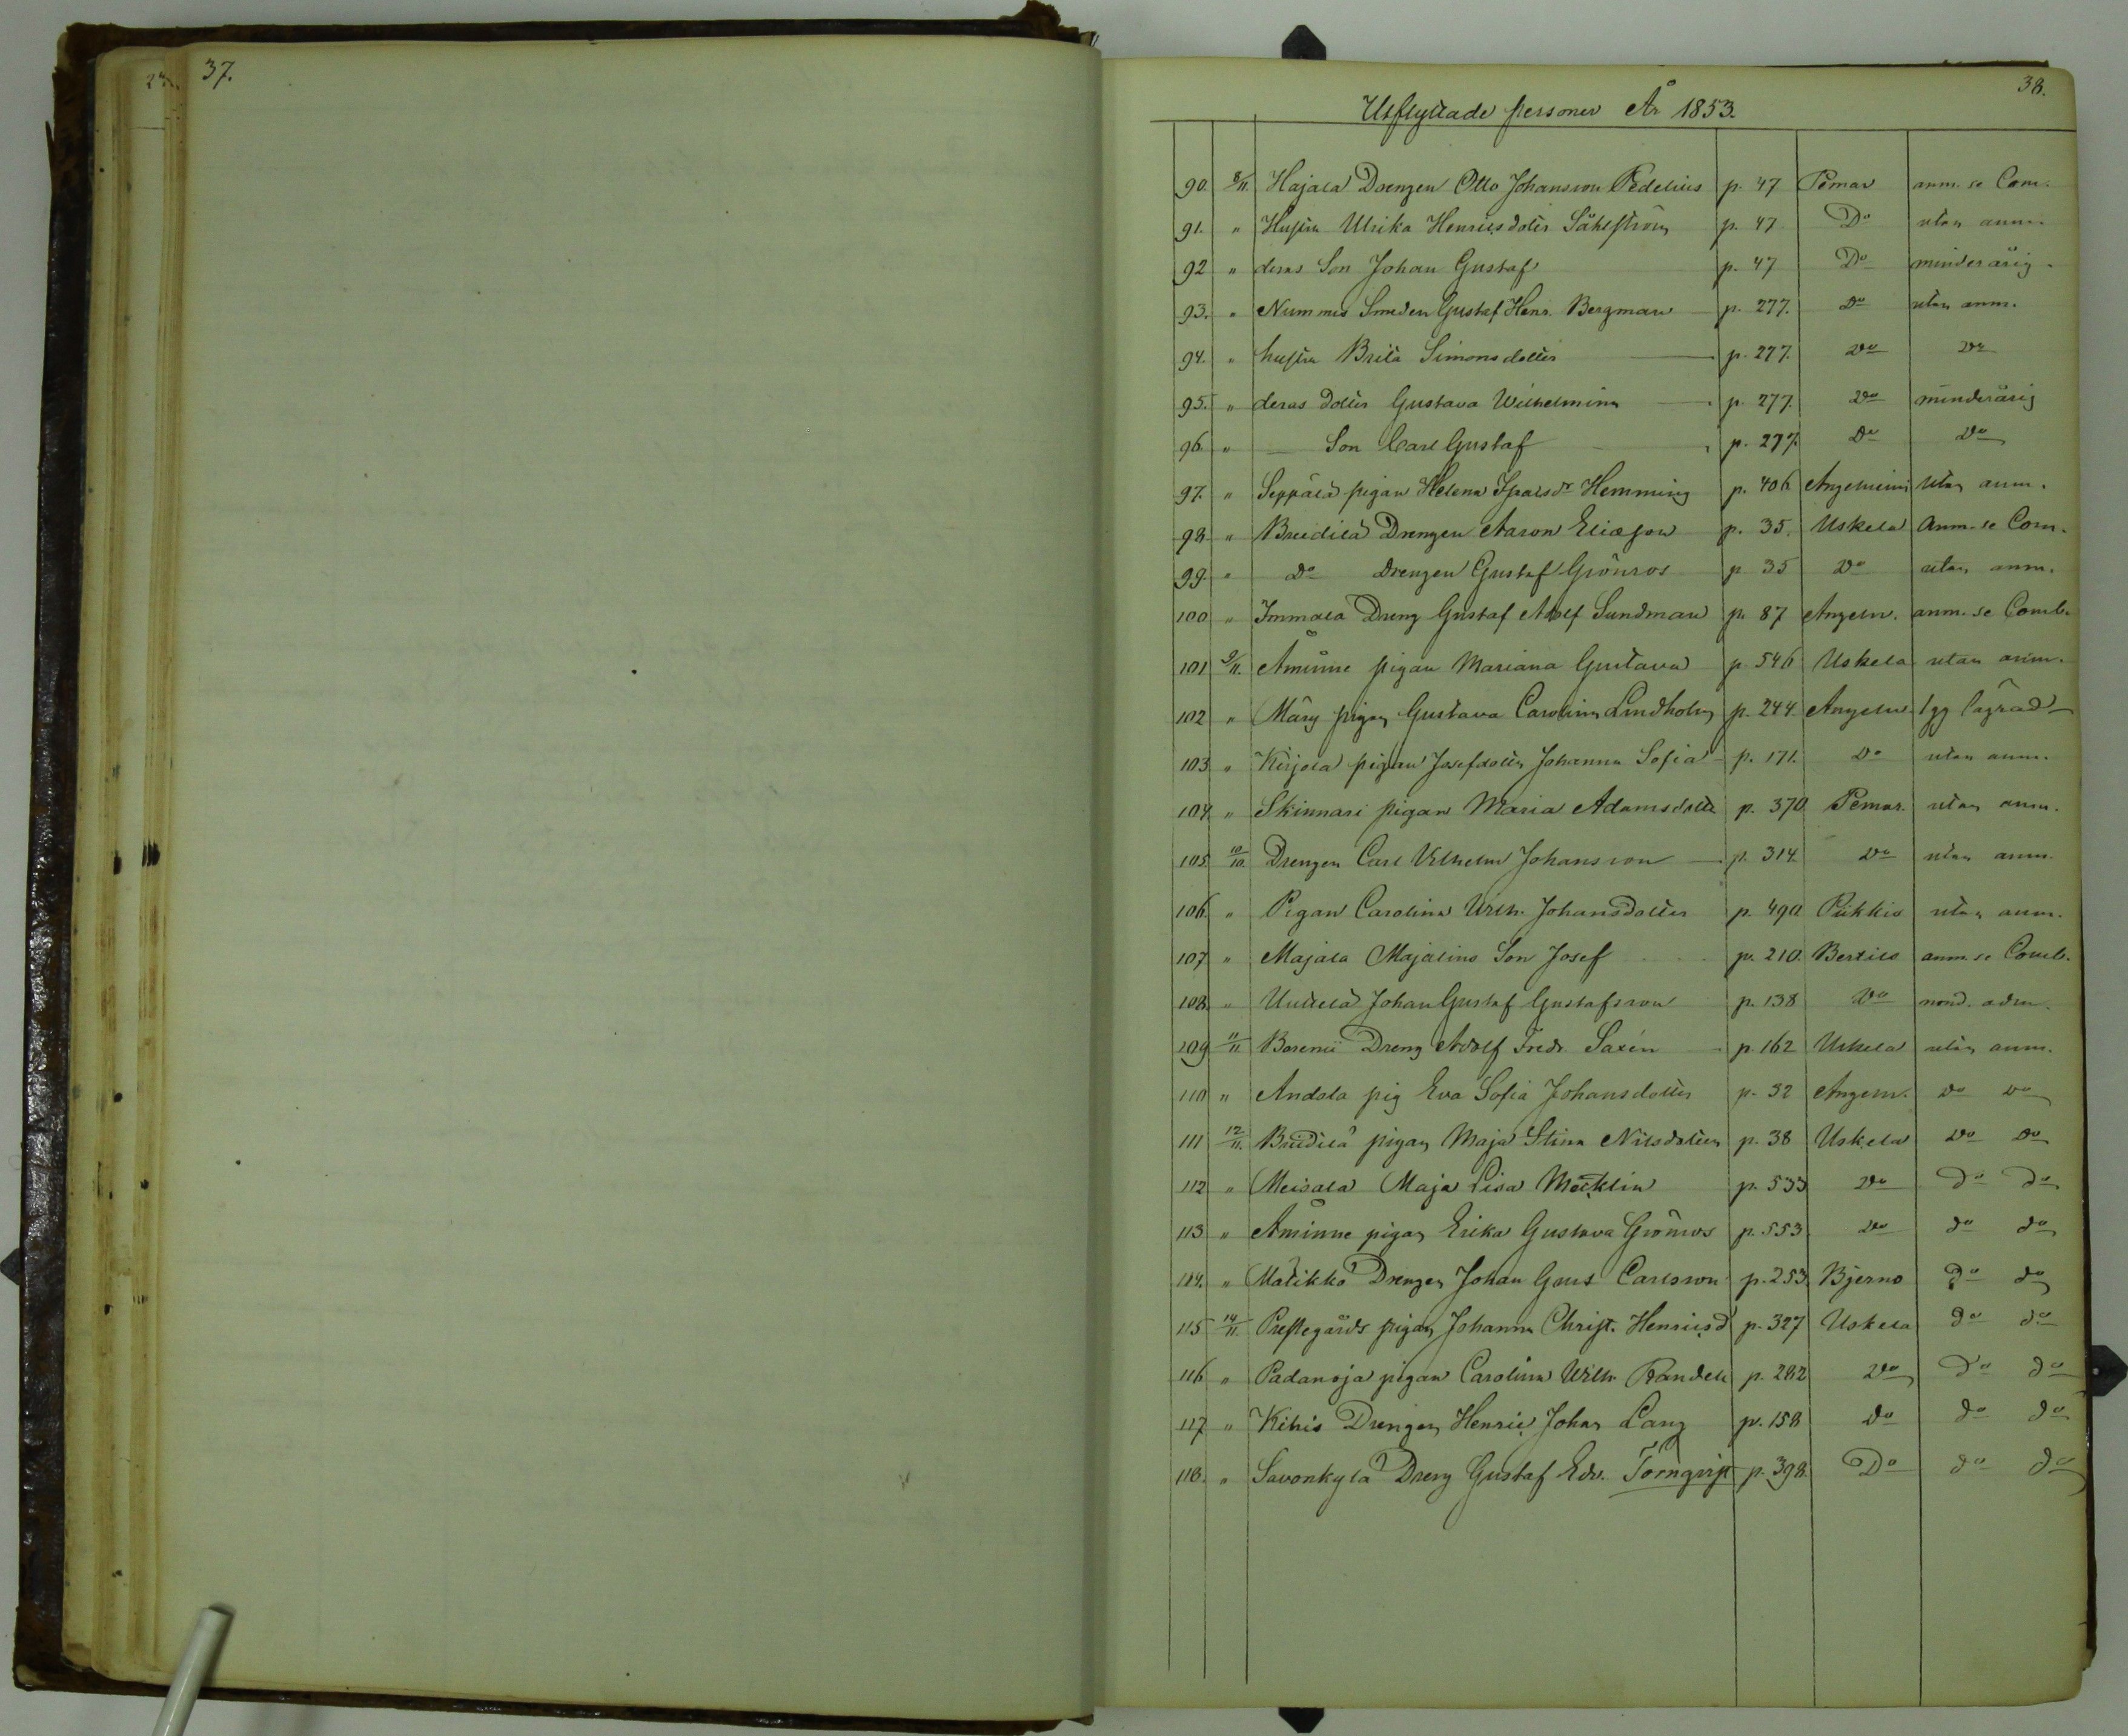 37.
38.
Utflyttade personer År 1853.
90. 8/11. Hajala Drengen Otto Johansson Redelius p. 47 Pemar anm. se Com.
91. " Hustru Ulrika Henricsdotter Såhlström p. 47 Do utan anm.
92 " deras Son Johan Gustaf p. 47 Do minderårig.
93. " Nummis Smeden Gustaf Henr. Bergman p. 277. Do utan anm.
94. " hustru Brita Simonsdotter p. 277. Do Do
95. " deras dotter Gustava Wilhelmina p. 277. Do minderårig
96. " — Son Carl Gustaf p. 277. Do Do
97. " Seppälä pigan Helena Isralsdr Hemming p. 406 Angelniemi utan anm.
98. " Breidilä Drengen Aaron Eliasson p. 35. Uskela Anm. se Com.
99. " Do Drengen Gustaf Grönros p. 35 Do utan anm.
100 " Immala Dreng Gustaf Adolf Sundman p. 87 Angeln. anm. se Comb.
101 9/11. Åminne pigan Mariana Gustava p. 546 Uskela utan anm.
102 " Märy pigan Gustava Carolina Lindholm p. 244. Angeln
103 " Kirjola pigan Josefdotter Johanna Sofia p. 171. Do utan anm.
104. " Skinnari pigan Maria Adamsdotter p. 370 Pemar. utan anm.
105. 10/10. Drengen Carl Vilhelm Johansson p. 314. Do utan anm.
106. " Pigan Carolina Wilh. Johansdotter p. 490 Pikkis utan anm.
107 " Majala Majalins Son Josef p. 210. Bertils anm. se Comb.
108. " Johan Gustaf Gustafsson p. 138 Do nond. adm.
109 11/11. Dreng Adolf Fredr. Saxén p. 162 Uskela utan anm.
110 " Andala pig Eva Sofia Johansdotter p. 32 Angeln. Do Do
111 12/11. Breidilä pigan Maja Stina Nilsdotter p. 38 Uskela Do Do
112 " Meisala Maja Lisa Mæcklin p. 533 Do do do
113 " Åminne pigan Erika Gustava Grönros p. 553 Do do do
114. " Matikko Drengen Johan Gust Carlsson p. 253. Bjerno do do
115 14/11. Prestegårds pigan Johanna Christ. Henricsd p. 327 Uskela do do
116 " Padanoja pigan Carolina Wilh. Randell p. 282 Do do do
117 " Kihis Drengen Henric Johan Lang p. 158 Do do do
118. " Savonkylä Dreng Gustaf Edv. Törnqvist p. 398. Do do do